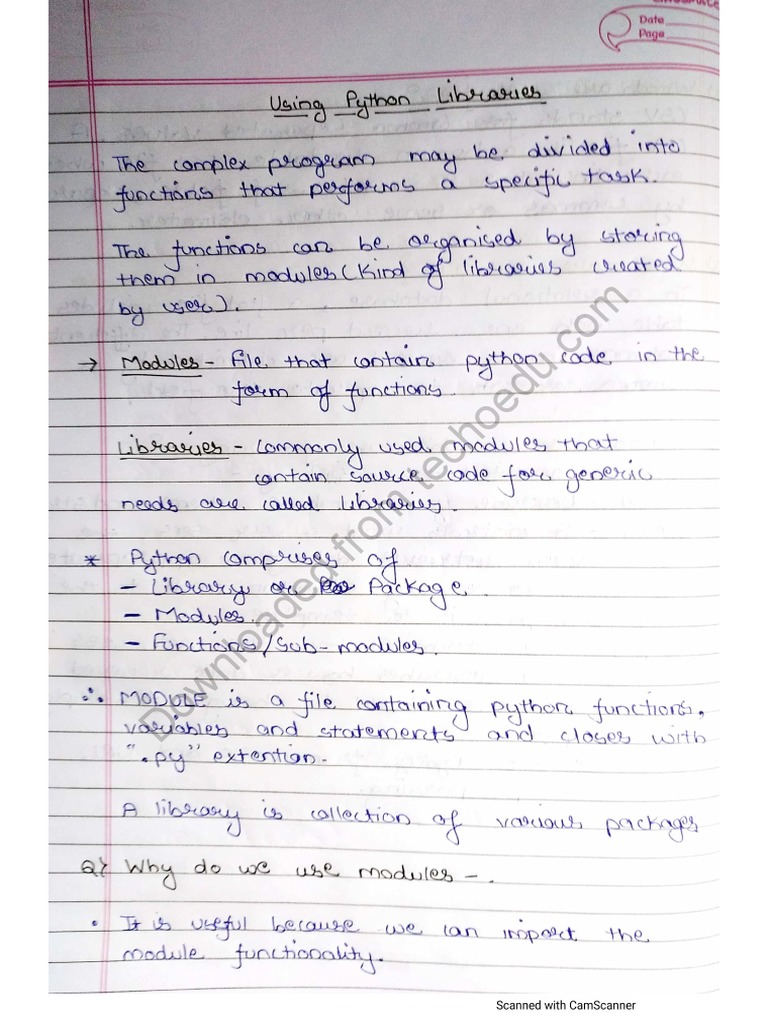 Date
Page
Using Python Libraries
The complex program may be divided into
functions that performs a specific task.
The functions can be organised by storing
them in modules (kind of libraries created
by user).
→ Modules - File that contain python code in the
form of functions.
Libraries - Commonly used modules that
contain source code for generic
needs are called libraries.
* Python comprises of
- Library or Package.
- Modules.
- Functions/Sub-modules.
∴ MODULE is a file containing python functions,
variables and statements and closes with
".py" extention.
A library is collection of various packages
Q) Why do we use modules -.
• It is useful because we can import the
module functionality.
Downloaded from techoedu.com
Scanned with CamScanner